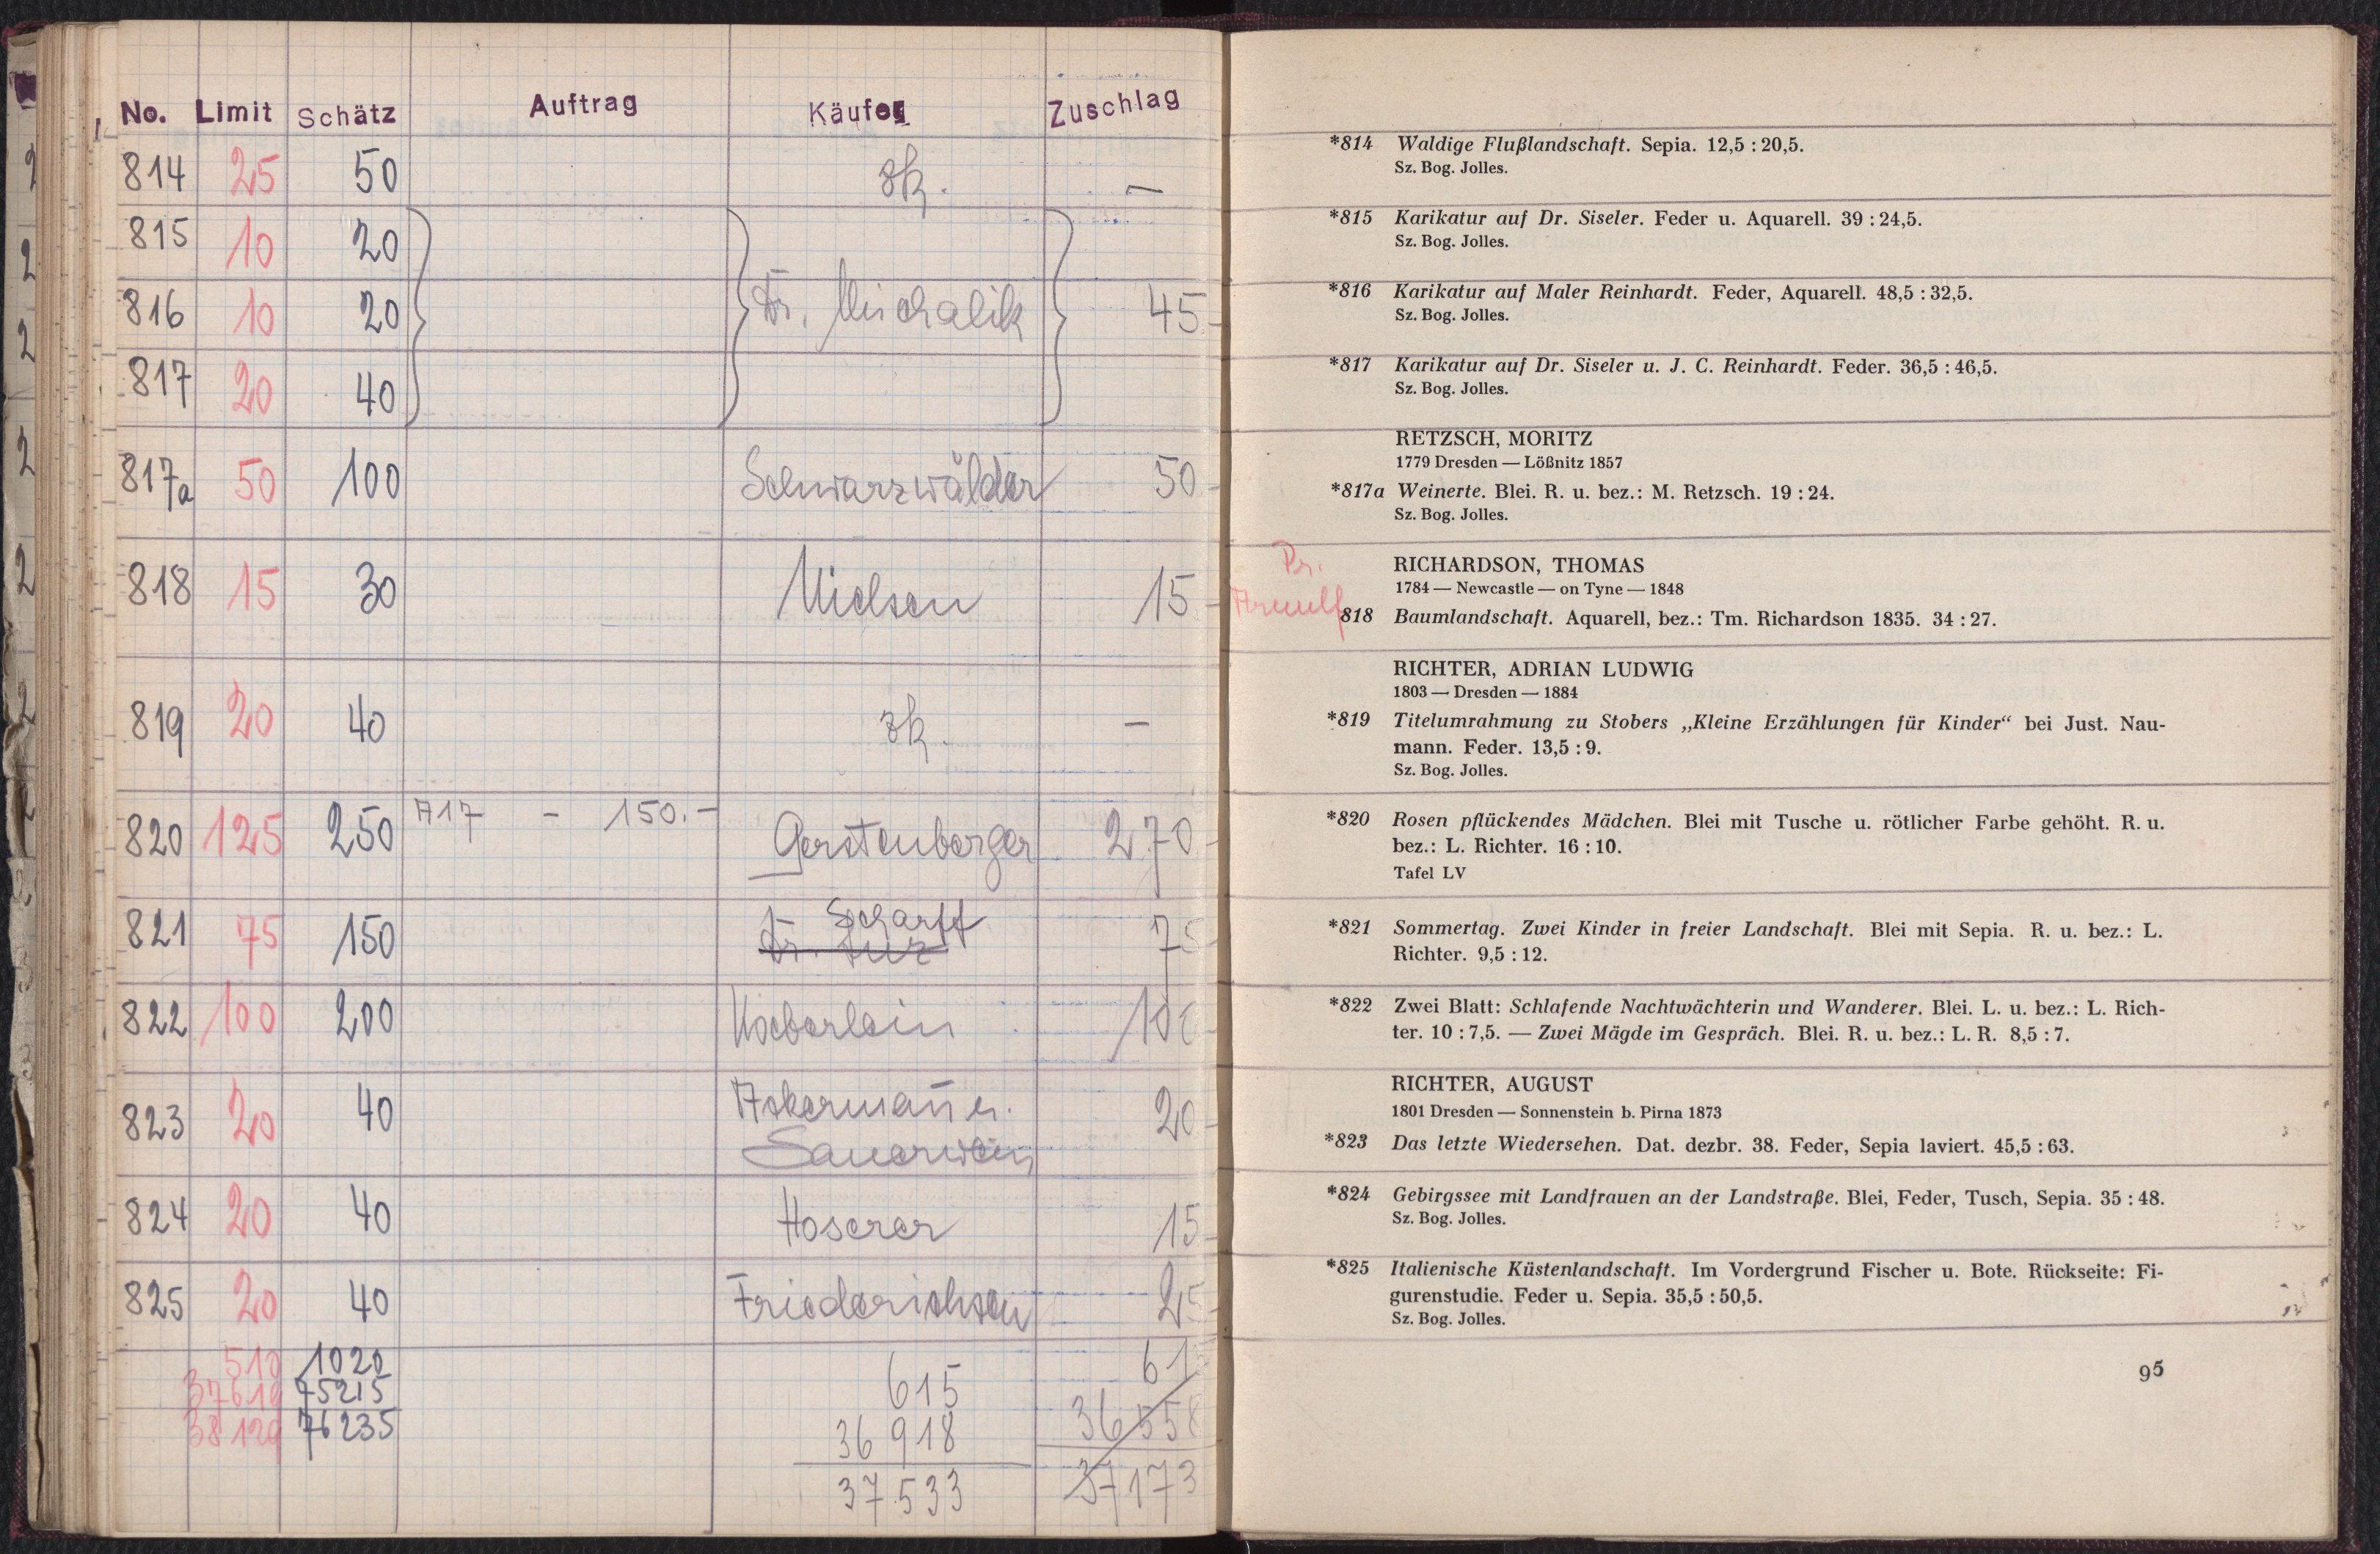 No. Limit Schätz Auftrag Käufer Zuschlag
814 25 50 zk. —
815 10 20
816 10 20 Dr. Michalik 45.-
817 20 40
817a 50 100 Schwarzwälder 50.-
818 15 30 Nielsen 15.-
819 20 40 zk. —
820 125 250 A17 - 150.- Gerstenberger 270.-
821 75 150 Scharff 75
Dr.
822 100 200 100
823 20 40 Ackermann u. 20.-
Sauerwein
824 20 40 Hoserer 15.-
825 20 40 Friederichsen 25.-
510 1020 615 61
37610 75215 36 918 36 558
38120 76235 37.533 37173
*814 Waldige Flußlandschaft. Sepia. 12,5 : 20,5.
Sz. Bog. Jolles.
*815 Karikatur auf Dr. Siseler. Feder u. Aquarell. 39 : 24,5.
Sz. Bog. Jolles.
*816 Karikatur auf Maler Reinhardt. Feder, Aquarell. 48,5 : 32,5.
Sz. Bog. Jolles.
*817 Karikatur auf Dr. Siseler u. J. C. Reinhardt. Feder. 36,5 : 46,5.
Sz. Bog. Jolles.
RETZSCH, MORITZ
1779 Dresden — Lößnitz 1857
*817a Weinerte. Blei. R. u. bez.: M. Retzsch. 19 : 24.
Sz. Bog. Jolles.
Pr.
Arnulf
RICHARDSON, THOMAS
1784 — Newcastle — on Tyne — 1848
818 Baumlandschaft. Aquarell, bez.: Tm. Richardson 1835. 34 : 27.
RICHTER, ADRIAN LUDWIG
1803 — Dresden — 1884
*819 Titelumrahmung zu Stobers „Kleine Erzählungen für Kinder“ bei Just. Nau-
mann. Feder. 13,5 : 9.
Sz. Bog. Jolles.
*820 Rosen pflückendes Mädchen. Blei mit Tusche u. rötlicher Farbe gehöht. R. u.
bez.: L. Richter. 16 : 10.
Tafel LV
*821 Sommertag. Zwei Kinder in freier Landschaft. Blei mit Sepia. R. u. bez.: L.
Richter. 9,5 : 12.
*822 Zwei Blatt: Schlafende Nachtwächterin und Wanderer. Blei. L. u. bez.: L. Rich-
ter. 10 : 7,5. — Zwei Mägde im Gespräch. Blei. R. u. bez.: L. R. 8,5 : 7.
RICHTER, AUGUST
1801 Dresden — Sonnenstein b. Pirna 1873
*823 Das letzte Wiedersehen. Dat. dezbr. 38. Feder, Sepia laviert. 45,5 : 63.
*824 Gebirgssee mit Landfrauen an der Landstraße. Blei, Feder, Tusch, Sepia. 35 : 48.
Sz. Bog. Jolles.
*825 Italienische Küstenlandschaft. Im Vordergrund Fischer u. Bote. Rückseite: Fi-
gurenstudie. Feder u. Sepia. 35,5 : 50,5.
Sz. Bog. Jolles.
95